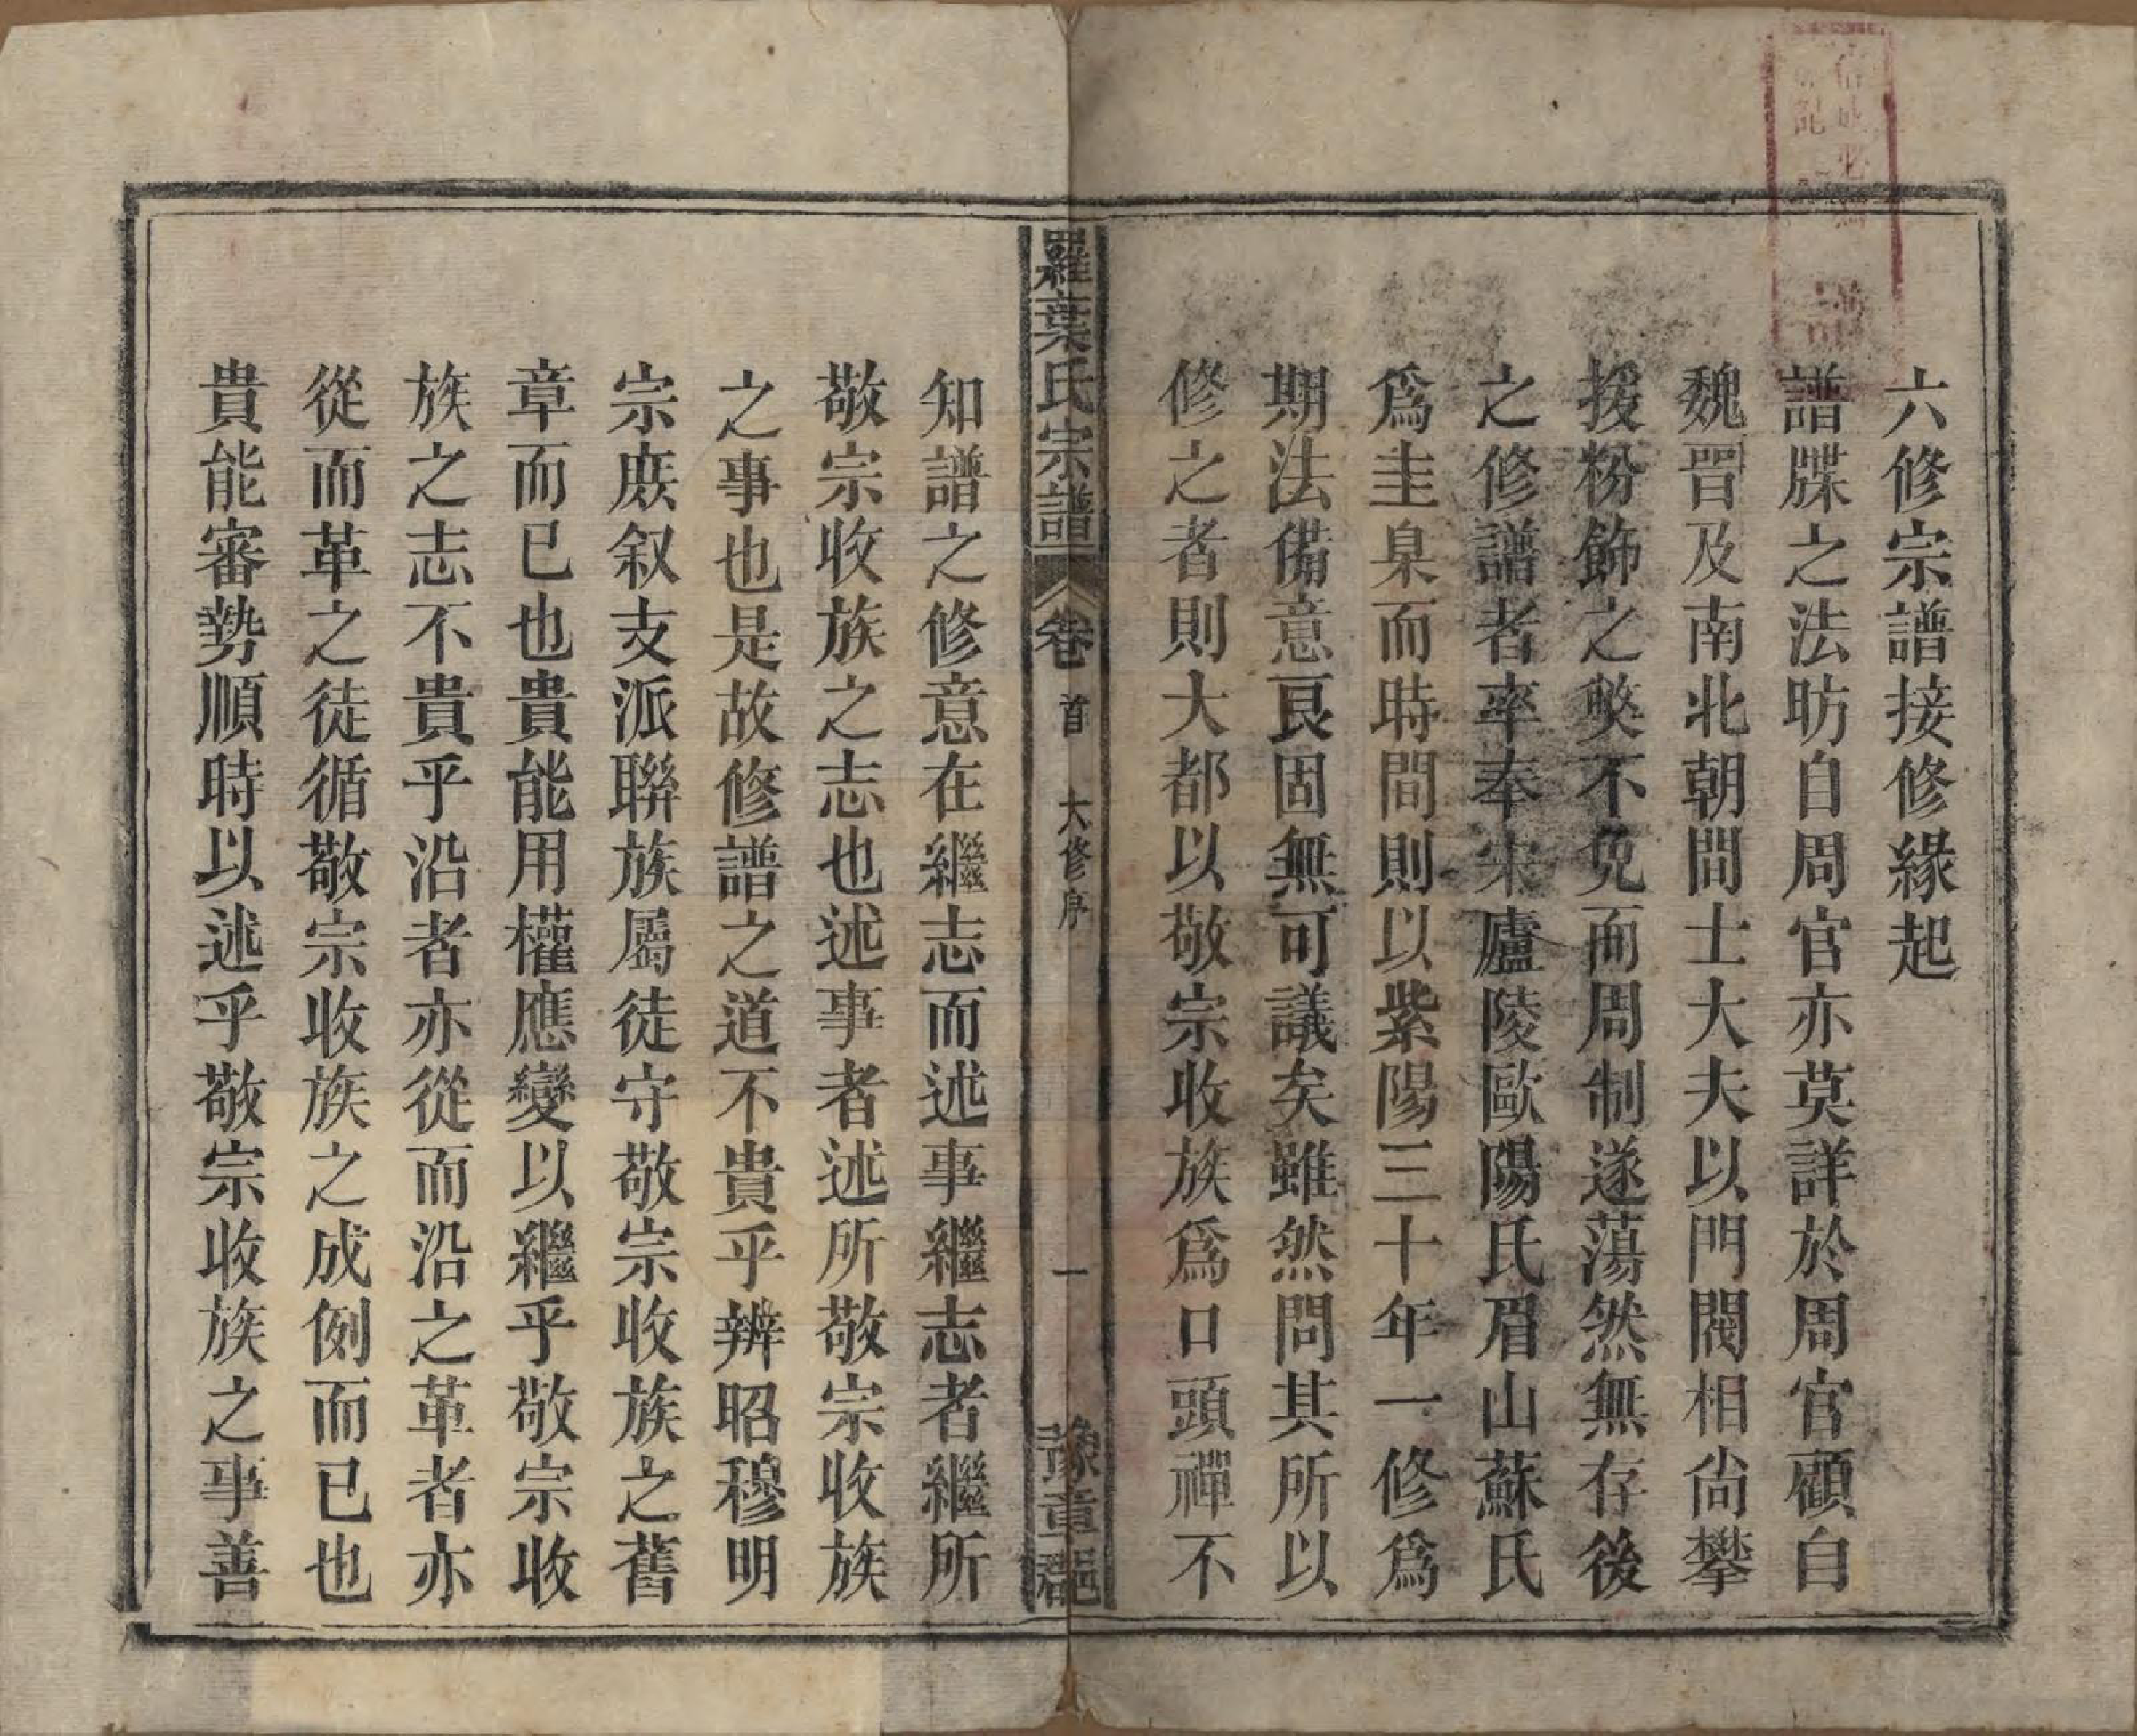 六修宗譜接修緣起
譜牒之法昉自周官亦莫詳於周官顧自
魏晉及南北朝間士大夫以門閥相尙攀
援粉飾之獘不免而周制遂蕩然無存後
之修譜者率奉宋廬陵歐陽氏眉山蘇氏
爲圭臬而時間則以紫陽三十年一修爲
期法備意良固無可議矣雖然問其所以
修之者則大都以敬宗收族爲口頭禪不
羅葉氏宗譜
卷首
六修序
一
豫章郡
知譜之修意在繼志而述事繼志者繼所
敬宗收族之志也述事者述所敬宗收族
之事也是故修譜之道不貴乎辨昭穆明
宗庶叙支派聯族屬徒守敬宗收族之舊
章而已也貴能用權應變以繼乎敬宗收
族之志不貴乎沿者亦從而沿之革者亦
從而革之徒循敬宗收族之成例而已也
貴能審勢順時以述乎敬宗收族之事善